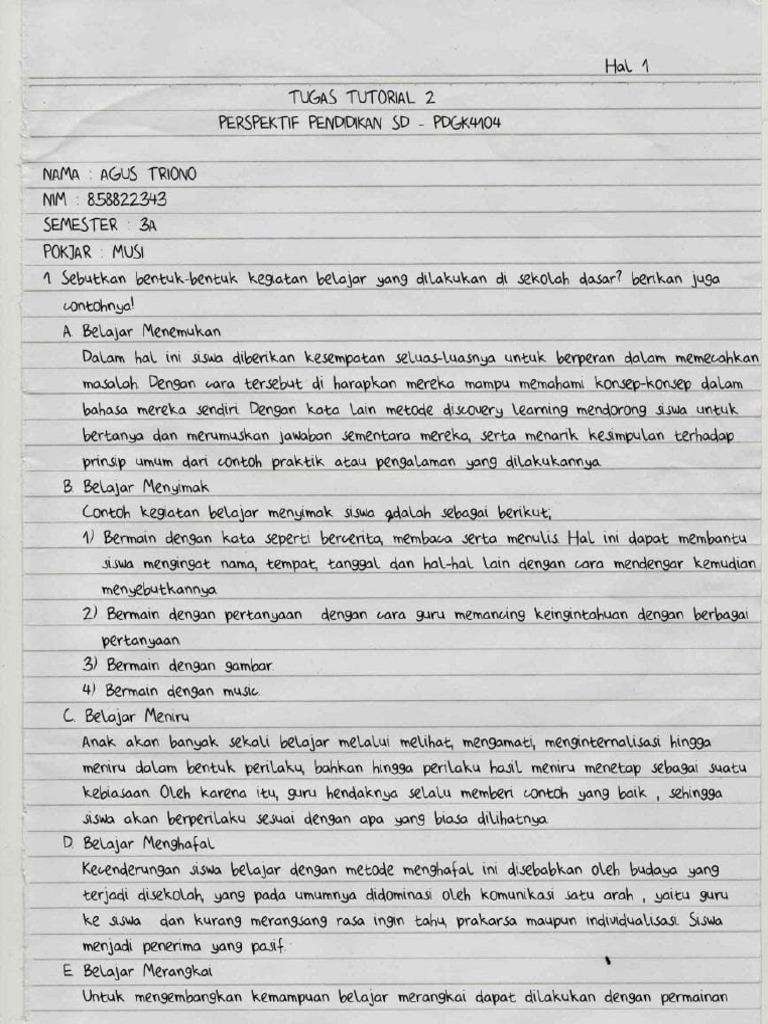 Hal 1
TUGAS TUTORIAL 2
PERSPEKTIF PENDIDIKAN SD - PDGK4104
NAMA : AGUS TRIONO
NIM : 858822343
SEMESTER : 3A
POKJAR : MUSI
1 Sebutkan bentuk-bentuk kegiatan belajar yang dilakukan di sekolah dasar? berikan juga
contohnya!
A. Belajar Menemukan
Dalam hal ini siswa diberikan kesempatan seluas-luasnya untuk berperan dalam memecahkan
masalah. Dengan cara tersebut di harapkan mereka mampu memahami konsep-konsep dalam
bahasa mereka sendiri. Dengan kata lain metode discovery learning mendorong siswa untuk
bertanya dan merumuskan jawaban sementara mereka, serta menarik kesimpulan terhadap
prinsip umum dari contoh praktik atau pengalaman yang dilakukannya.
B. Belajar Menyimak
Contoh kegiatan belajar menyimak siswa adalah sebagai berikut;
1) Bermain dengan kata seperti bercerita, membaca serta menulis. Hal ini dapat membantu
siswa mengingat nama, tempat, tanggal dan hal-hal lain dengan cara mendengar kemudian
menyebutkannya.
2) Bermain dengan pertanyaan dengan cara guru memancing keingintahuan dengan berbagai
pertanyaan.
3) Bermain dengan gambar.
4) Bermain dengan music.
C. Belajar Meniru
Anak akan banyak sekali belajar melalui melihat, mengamati, menginternalisasi hingga
meniru dalam bentuk perilaku, bahkan hingga perilaku hasil meniru menetap sebagai suatu
kebiasaan. Oleh karena itu, guru hendaknya selalu memberi contoh yang baik , sehingga
siswa akan berperilaku sesuai dengan apa yang biasa dilihatnya.
D. Belajar Menghafal
Kecenderungan siswa belajar dengan metode menghafal ini disebabkan oleh budaya yang
terjadi disekolah, yang pada umumnya didominasi oleh komunikasi satu arah , yaitu guru
ke siswa dan kurang merangsang rasa ingin tahu, prakarsa maupun individualisasi. Siswa
menjadi penerima yang pasif.
E. Belajar Merangkai
Untuk mengembangkan kemampuan belajar merangkai dapat dilakukan dengan permainan